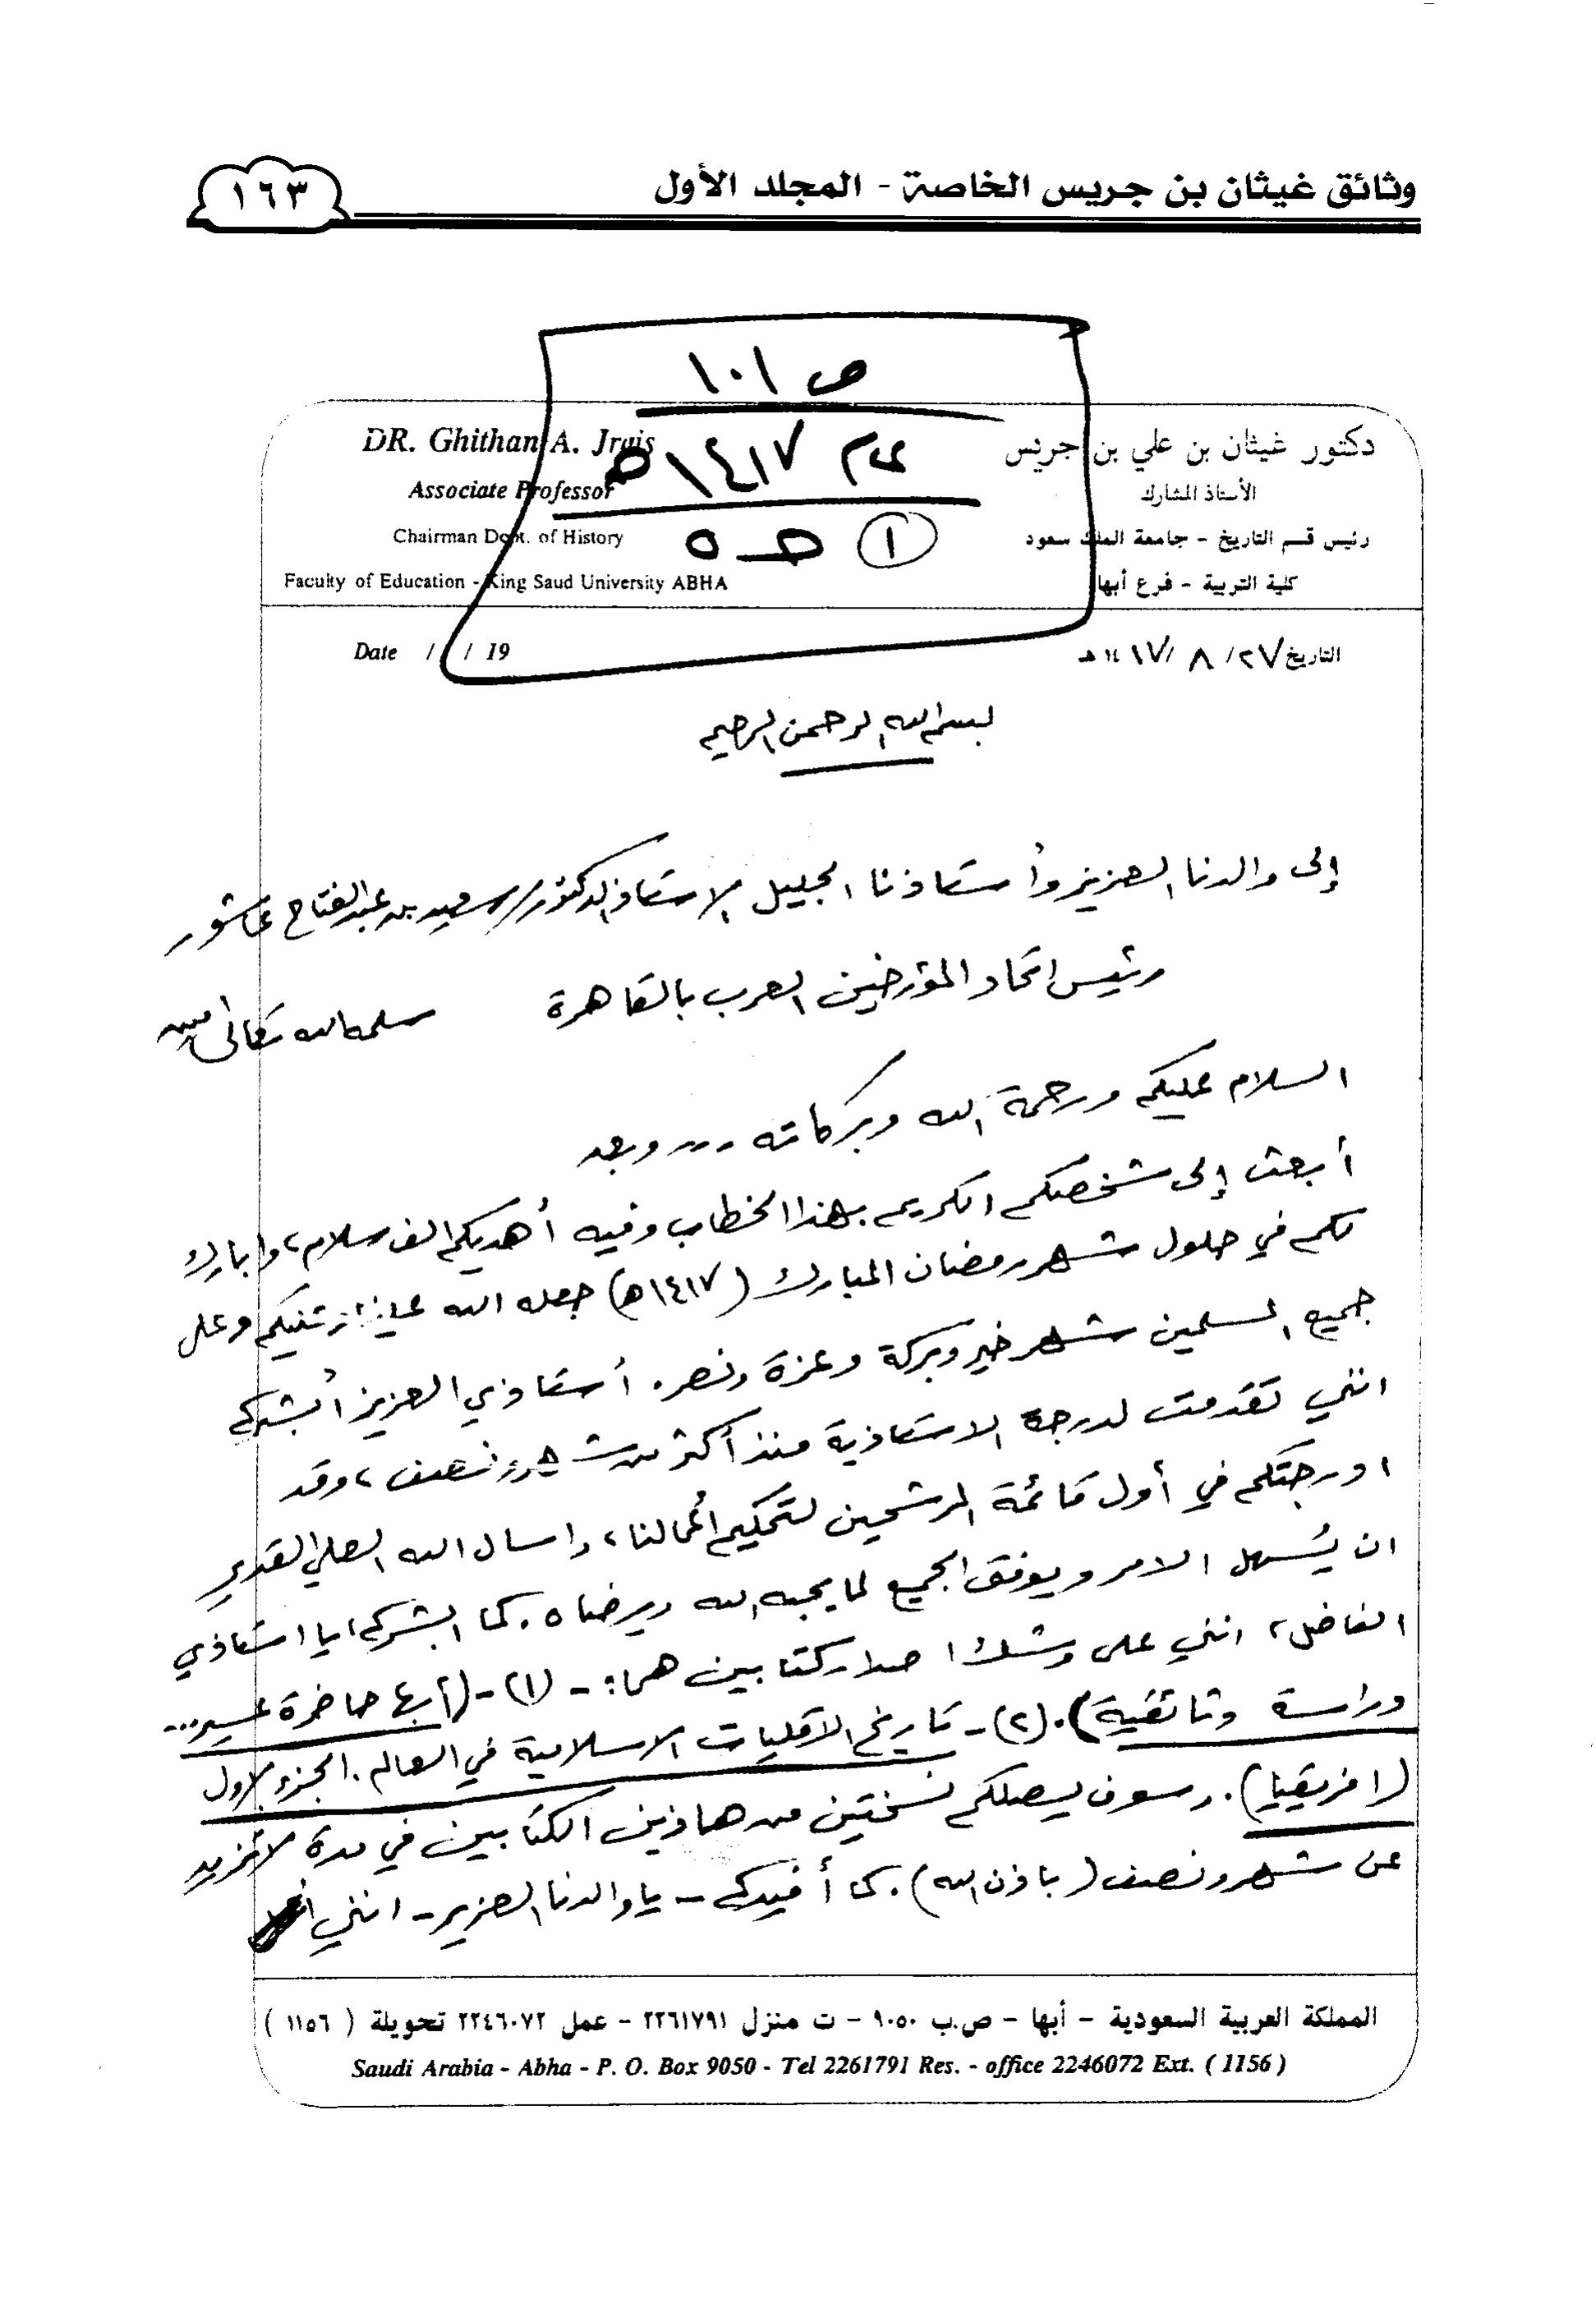 وثائق غيثان بن جريس الخاصة - المجلد الأول
١٦٣
ص ١٠١
عام ١٤١٧هـ
١
دكتور غيثان بن علي بن جريس
الأستاذ المشارك
رئيس قسم التاريخ - جامعة الملك سعود
كلية التربية - فرع أبها
DR. Ghithan A. Jrais
Associate Professor
Chairman Dept. of History
Faculty of Education - King Saud University ABHA
التاريخ ٢٧/ ٨ /١٤١٧هـ
Date / / 19
بسم الله الرحمن الرحيم
إلى والدنا العزيز وأستاذنا الجليل الاستاذ الدكتور/ سعيد بن عبدالفتاح عاشور
رئيس اتحاد المؤرخين العرب بالقاهرة سلمه الله تعالى آمين
السلام عليكم ورحمة الله وبركاته .... وبعد
أبعث إلى شخصكم الكريم بهذا الخطاب وفيه أهديكم الف سلام، وابارك
لكم في حلول شهر رمضان المبارك (١٤١٧هـ) جعله الله علينا وعليكم وعلى
جميع المسلمين شهر خير وبركة وعزة ونصر. أستاذي العزيز أبشركم
انني تقدمت لدرجة الاستاذية منذ أكثر من شهر ونصف، وقد
ادرجتكم في أول قائمة المرشحين لتحكيم أعمالنا، واسال الله العلي القدير
ان يُسهل الامر ويوفق الجميع لما يحبه الله ويرضاه. كما ابشركم يا استاذي
الفاضل، انني على وشك اصدار كتابين هما:- (١)- (أبها حاضرة عسير...
دراسة وثائقية). (٢)- تاريخ الاقليات الاسلامية في العالم. الجزء الاول
(افريقيا). وسوف يصلكم نسختين من هاذين الكتابين في مدة لا تزيد
عن شهر ونصف (باذن الله). كما أفيدكم - يا والدنا العزيز - انني
المملكة العربية السعودية - أبها - ص.ب ٩٠٥٠ - ت منزل ٢٢٦١٧٩١ - عمل ٢٢٤٦٠٧٢ تحويلة ( ١١٥٦ )
Saudi Arabia - Abha - P. O. Box 9050 - Tel 2261791 Res. - office 2246072 Ext. ( 1156 )